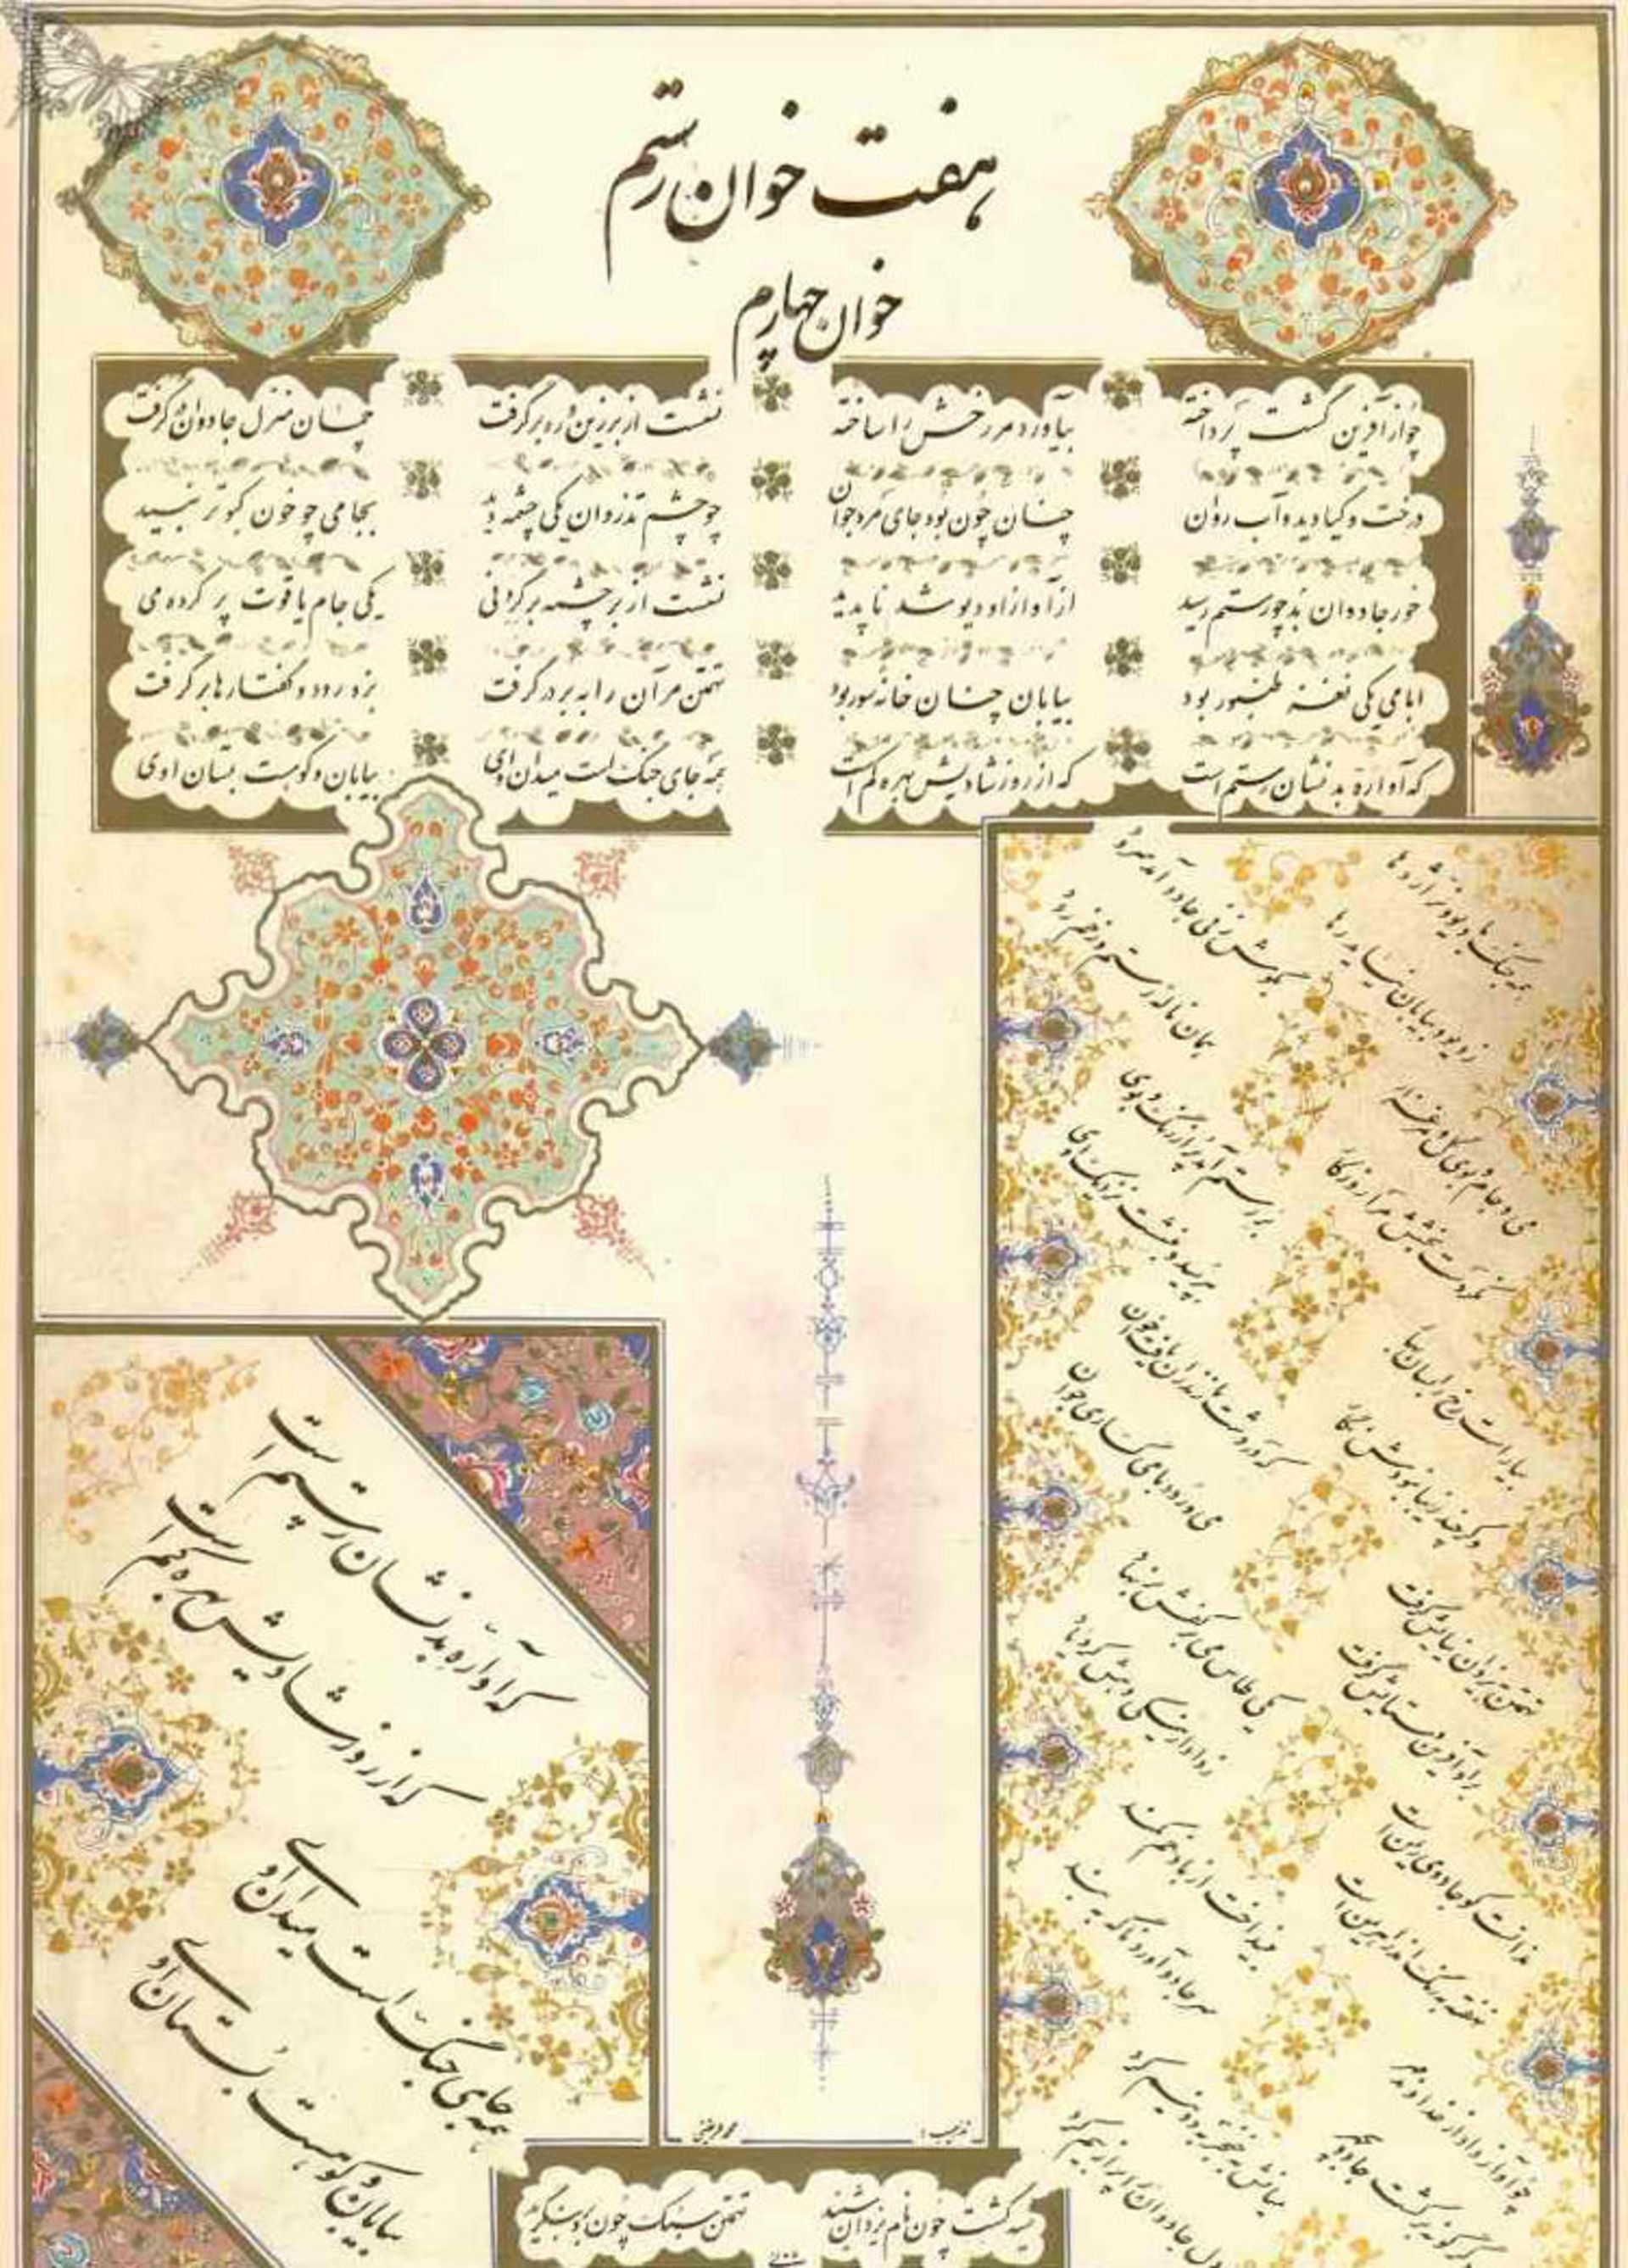 هفت خوان رستم
خوان چهارم
چو از آفرین گشت پرداخته بیاورد مر رخش را ساخته نشست از بر زین و ره برگرفت چمان منزل جادوان گرفت
درخت و گیا دید و آب روان چنان چون بود جای مرد جوان چو چشم تذروان یکی چشمه دید بجامی چو خون کبوتر نبید
خور جادوان بد چو رستم رسید از آواز او دیو شد ناپدید نشست از بر چشمه یکی جام یاقوت پر کرده می
ابا می یکی نغز طنبور بود بیابان چنان خانه سور بود تهمتن مر آن را به بر در گرفت بزد رود و گفتارها برگرفت
که آواره بدنشان رستم است که از روز شادیش بهره کم است همه جای جنگ است میدان اوی بیابان و کوهست بستان اوی
همه جنگ با دیو و نر اژدها
ز دیو و بیابان نیابد رها
می و جام و بوی گل و مرغزار
نکردست بخشش مرا روزگار
بگوش زن جادو آمد سرود
همان ناله رستم و زخم رود
بیاراست رخ را بسان بهار
وگر چند زیبا نبودش نگار
بر رستم آمد پر از رنگ و بوی
بپرسید و بنشست نزدیک اوی
تهمتن به یزدان نیایش گرفت
بر او آفرین و ستایش گرفت
که در دشت مازندران یافت خوان
می و رود با میگسار جوان
ندانست کو جادوی ریمن است
نهفته به رنگ اندر اهریمن است
یکی طاس می بر کفش برنهاد
ز دادار نیکی دهش کرد یاد
چو آواز داد از خداوند مهر
دگرگونه برگشت جادو بچهر
بینداخت از باد خم کمند
سر جادو آورد ناگه به بند
میانش به خنجر به دو نیم کرد
دل جادوان را پر از بیم کرد
که آواره بدنشان رستم است
که از روز شادیش بهره کم است
همه جای جنگ است میدان اوی
بیابان و کوهست بستان اوی
تذهیب:
سیه گشت چون نام یزدان شنید تهمتن سبک چون بدو بنگرید